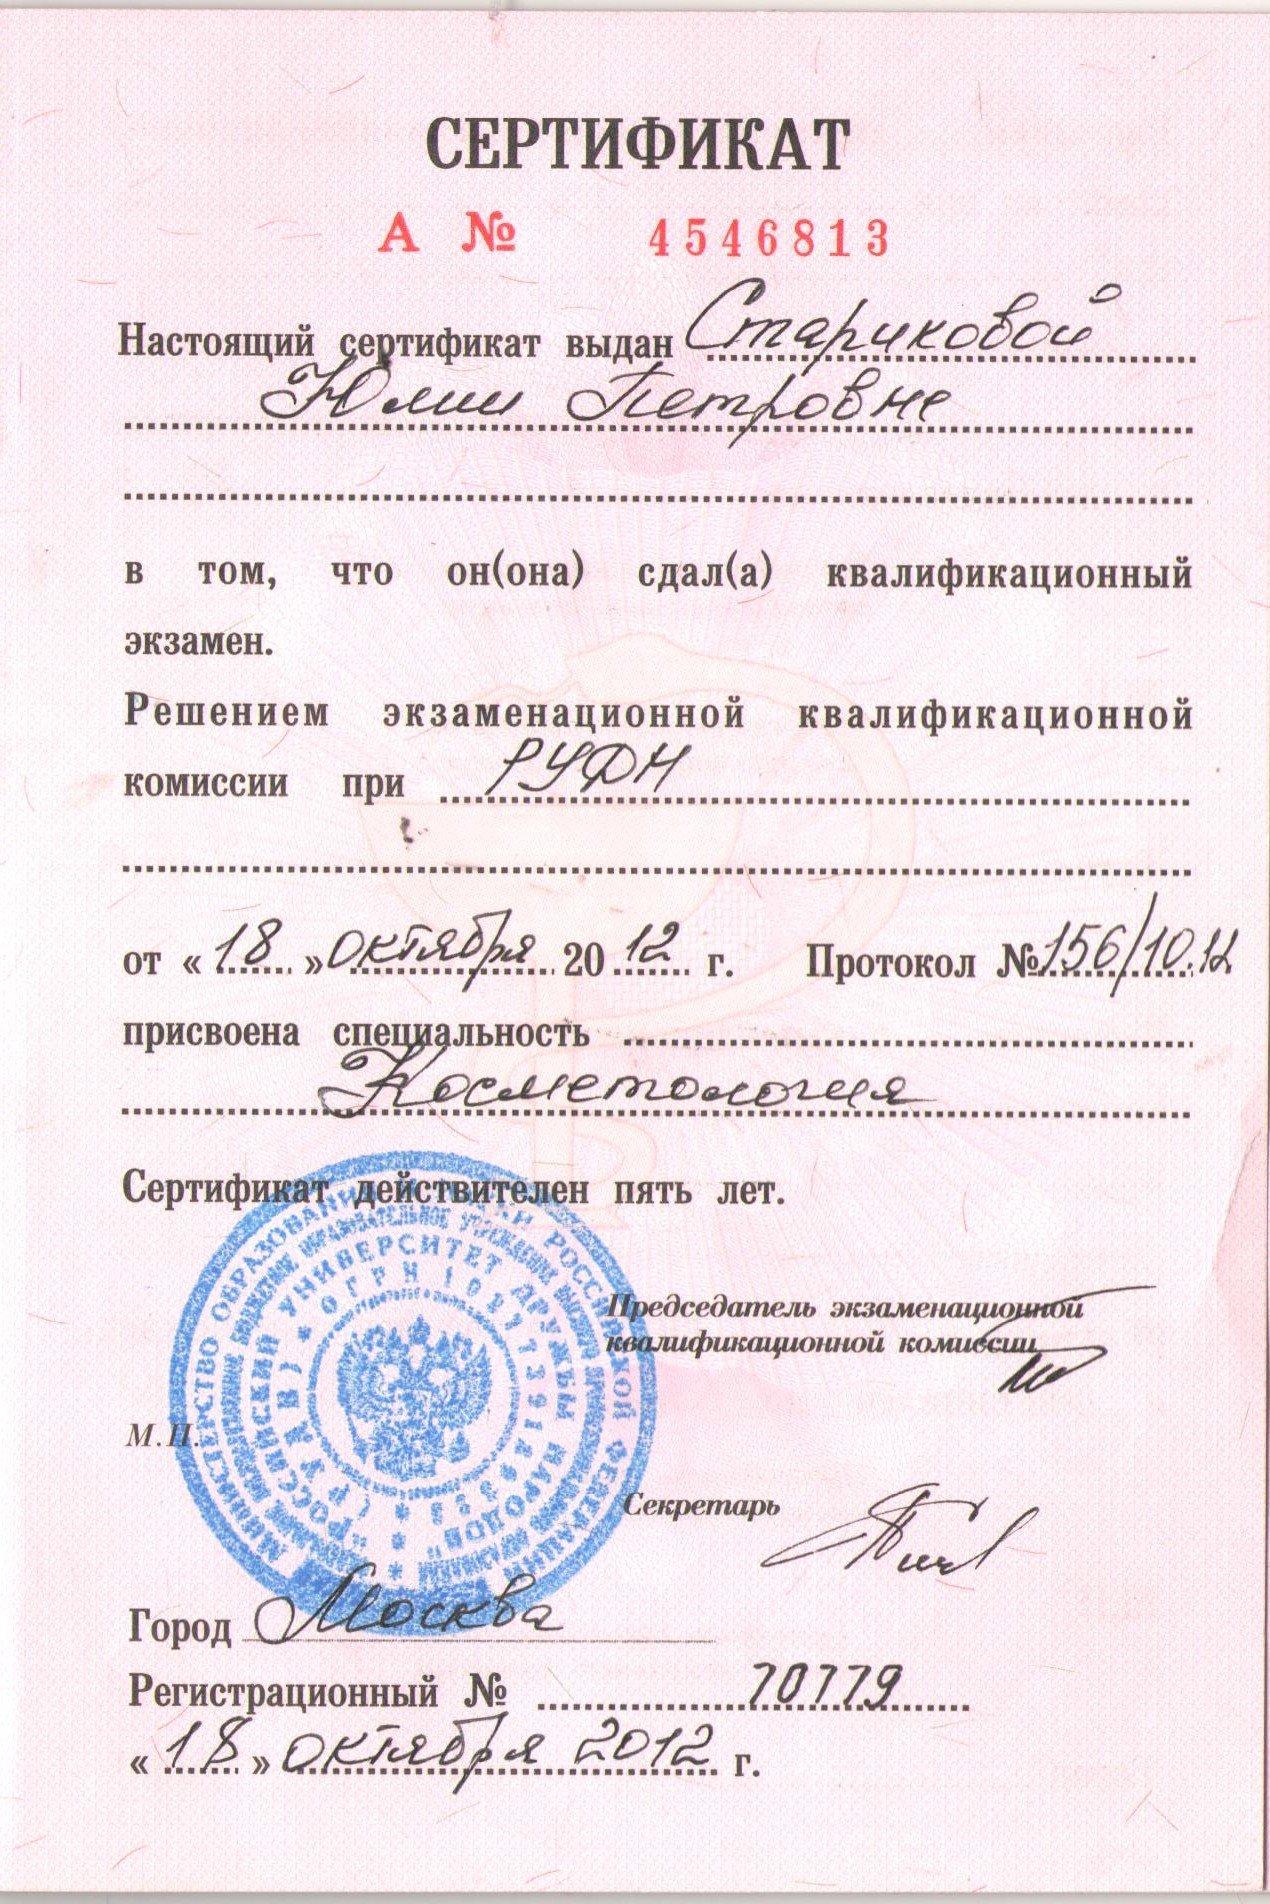 СЕРТИФИКАТ
А № 4546813
Настоящий сертификат выдан Стариковой
Юлии Петровне
в том, что он(она) сдал(а) квалификационный
экзамен.
Решением экзаменационной квалификационной
комиссии при РУДН
от «18» октября 2012 г. Протокол №156/10.12
присвоена специальность
Косметология
Сертификат действителен пять лет.
Председатель экзаменационной
квалификационной комиссии
М.П.
Секретарь
Город Москва
Регистрационный № 70779
«18» октября 2012 г.
МИНИСТЕРСТВО ОБРАЗОВАНИЯ И НАУКИ РОССИЙСКОЙ ФЕДЕРАЦИИ
"РОССИЙСКИЙ УНИВЕРСИТЕТ ДРУЖБЫ НАРОДОВ"